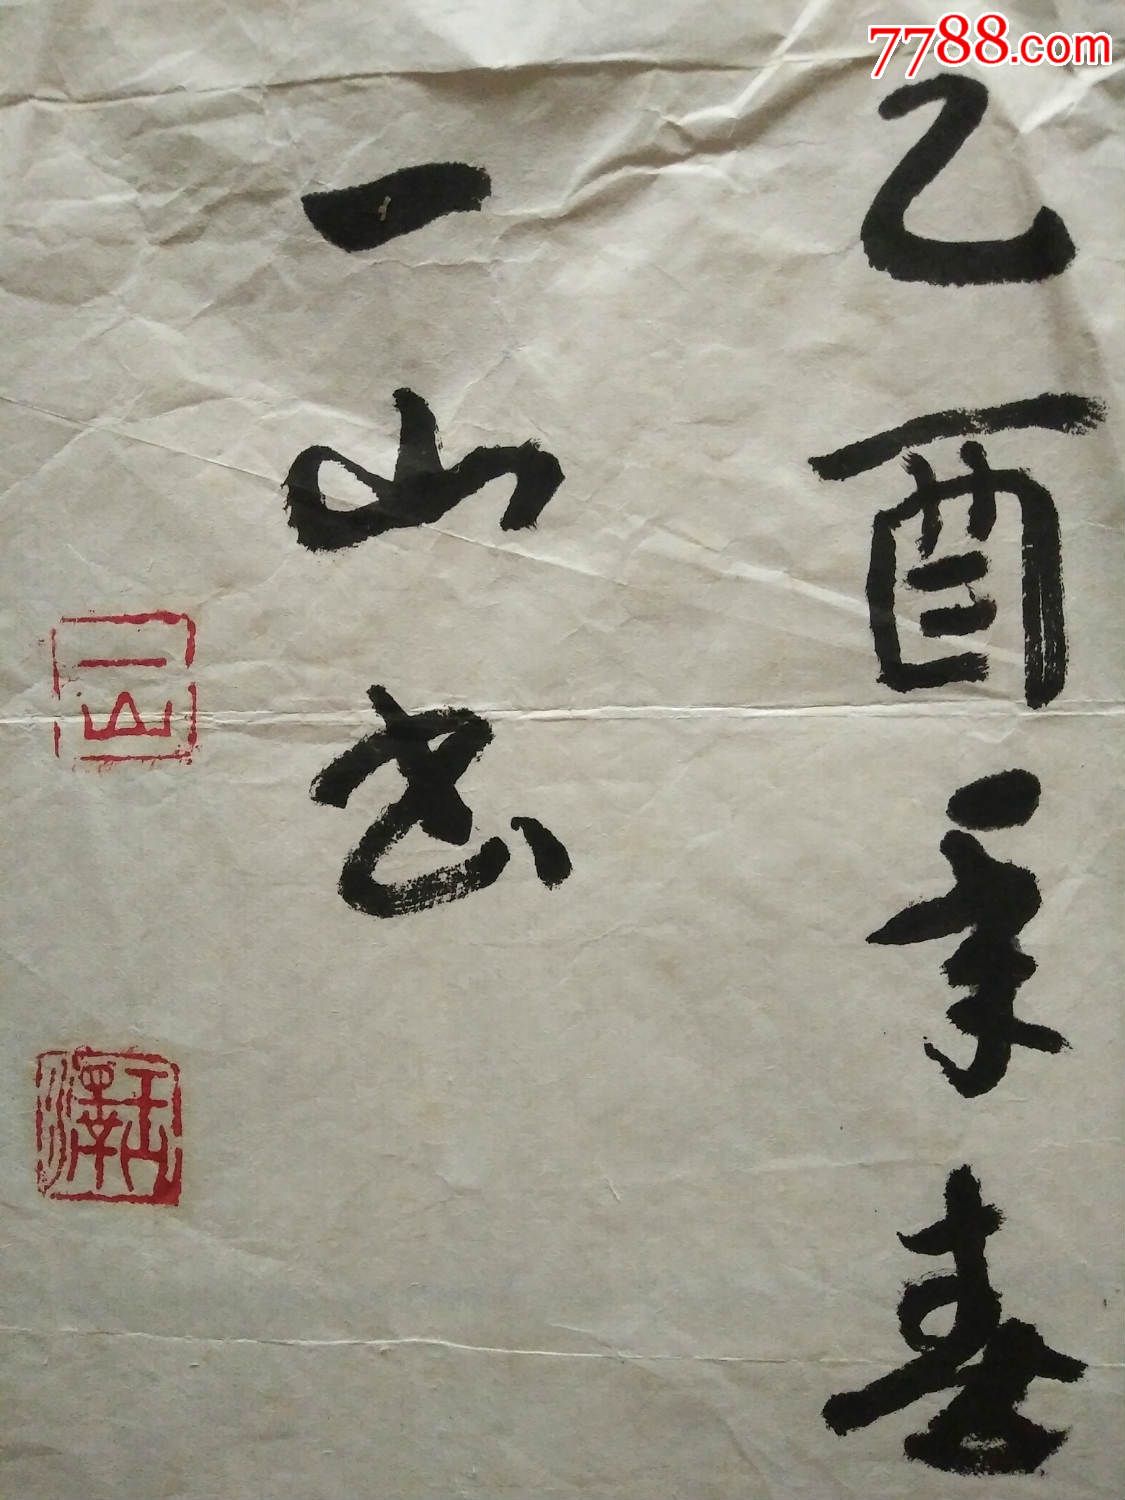 7788.com
乙酉年春
一山书
一山